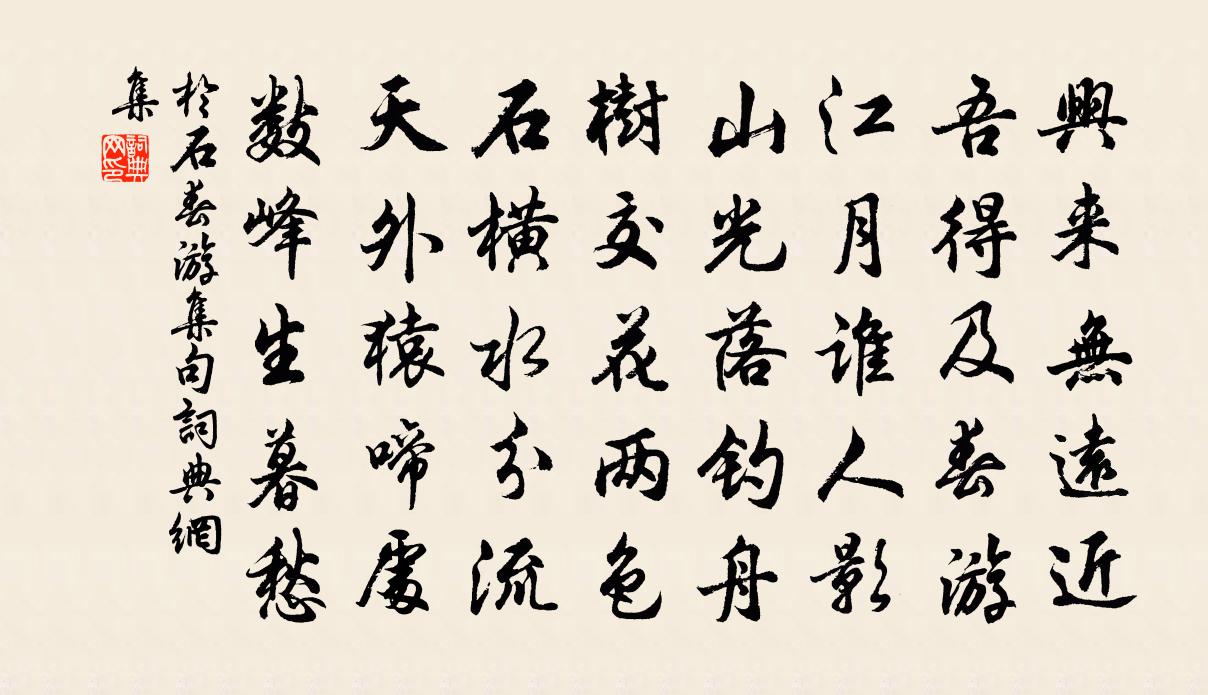 興来無遠近
吾得及春游
江月誰人影
山光落钓舟
樹交花两色
石横水分流
天外猿啼處
数峰生暮愁
於石春游集句詞典網
集
詞典
网印